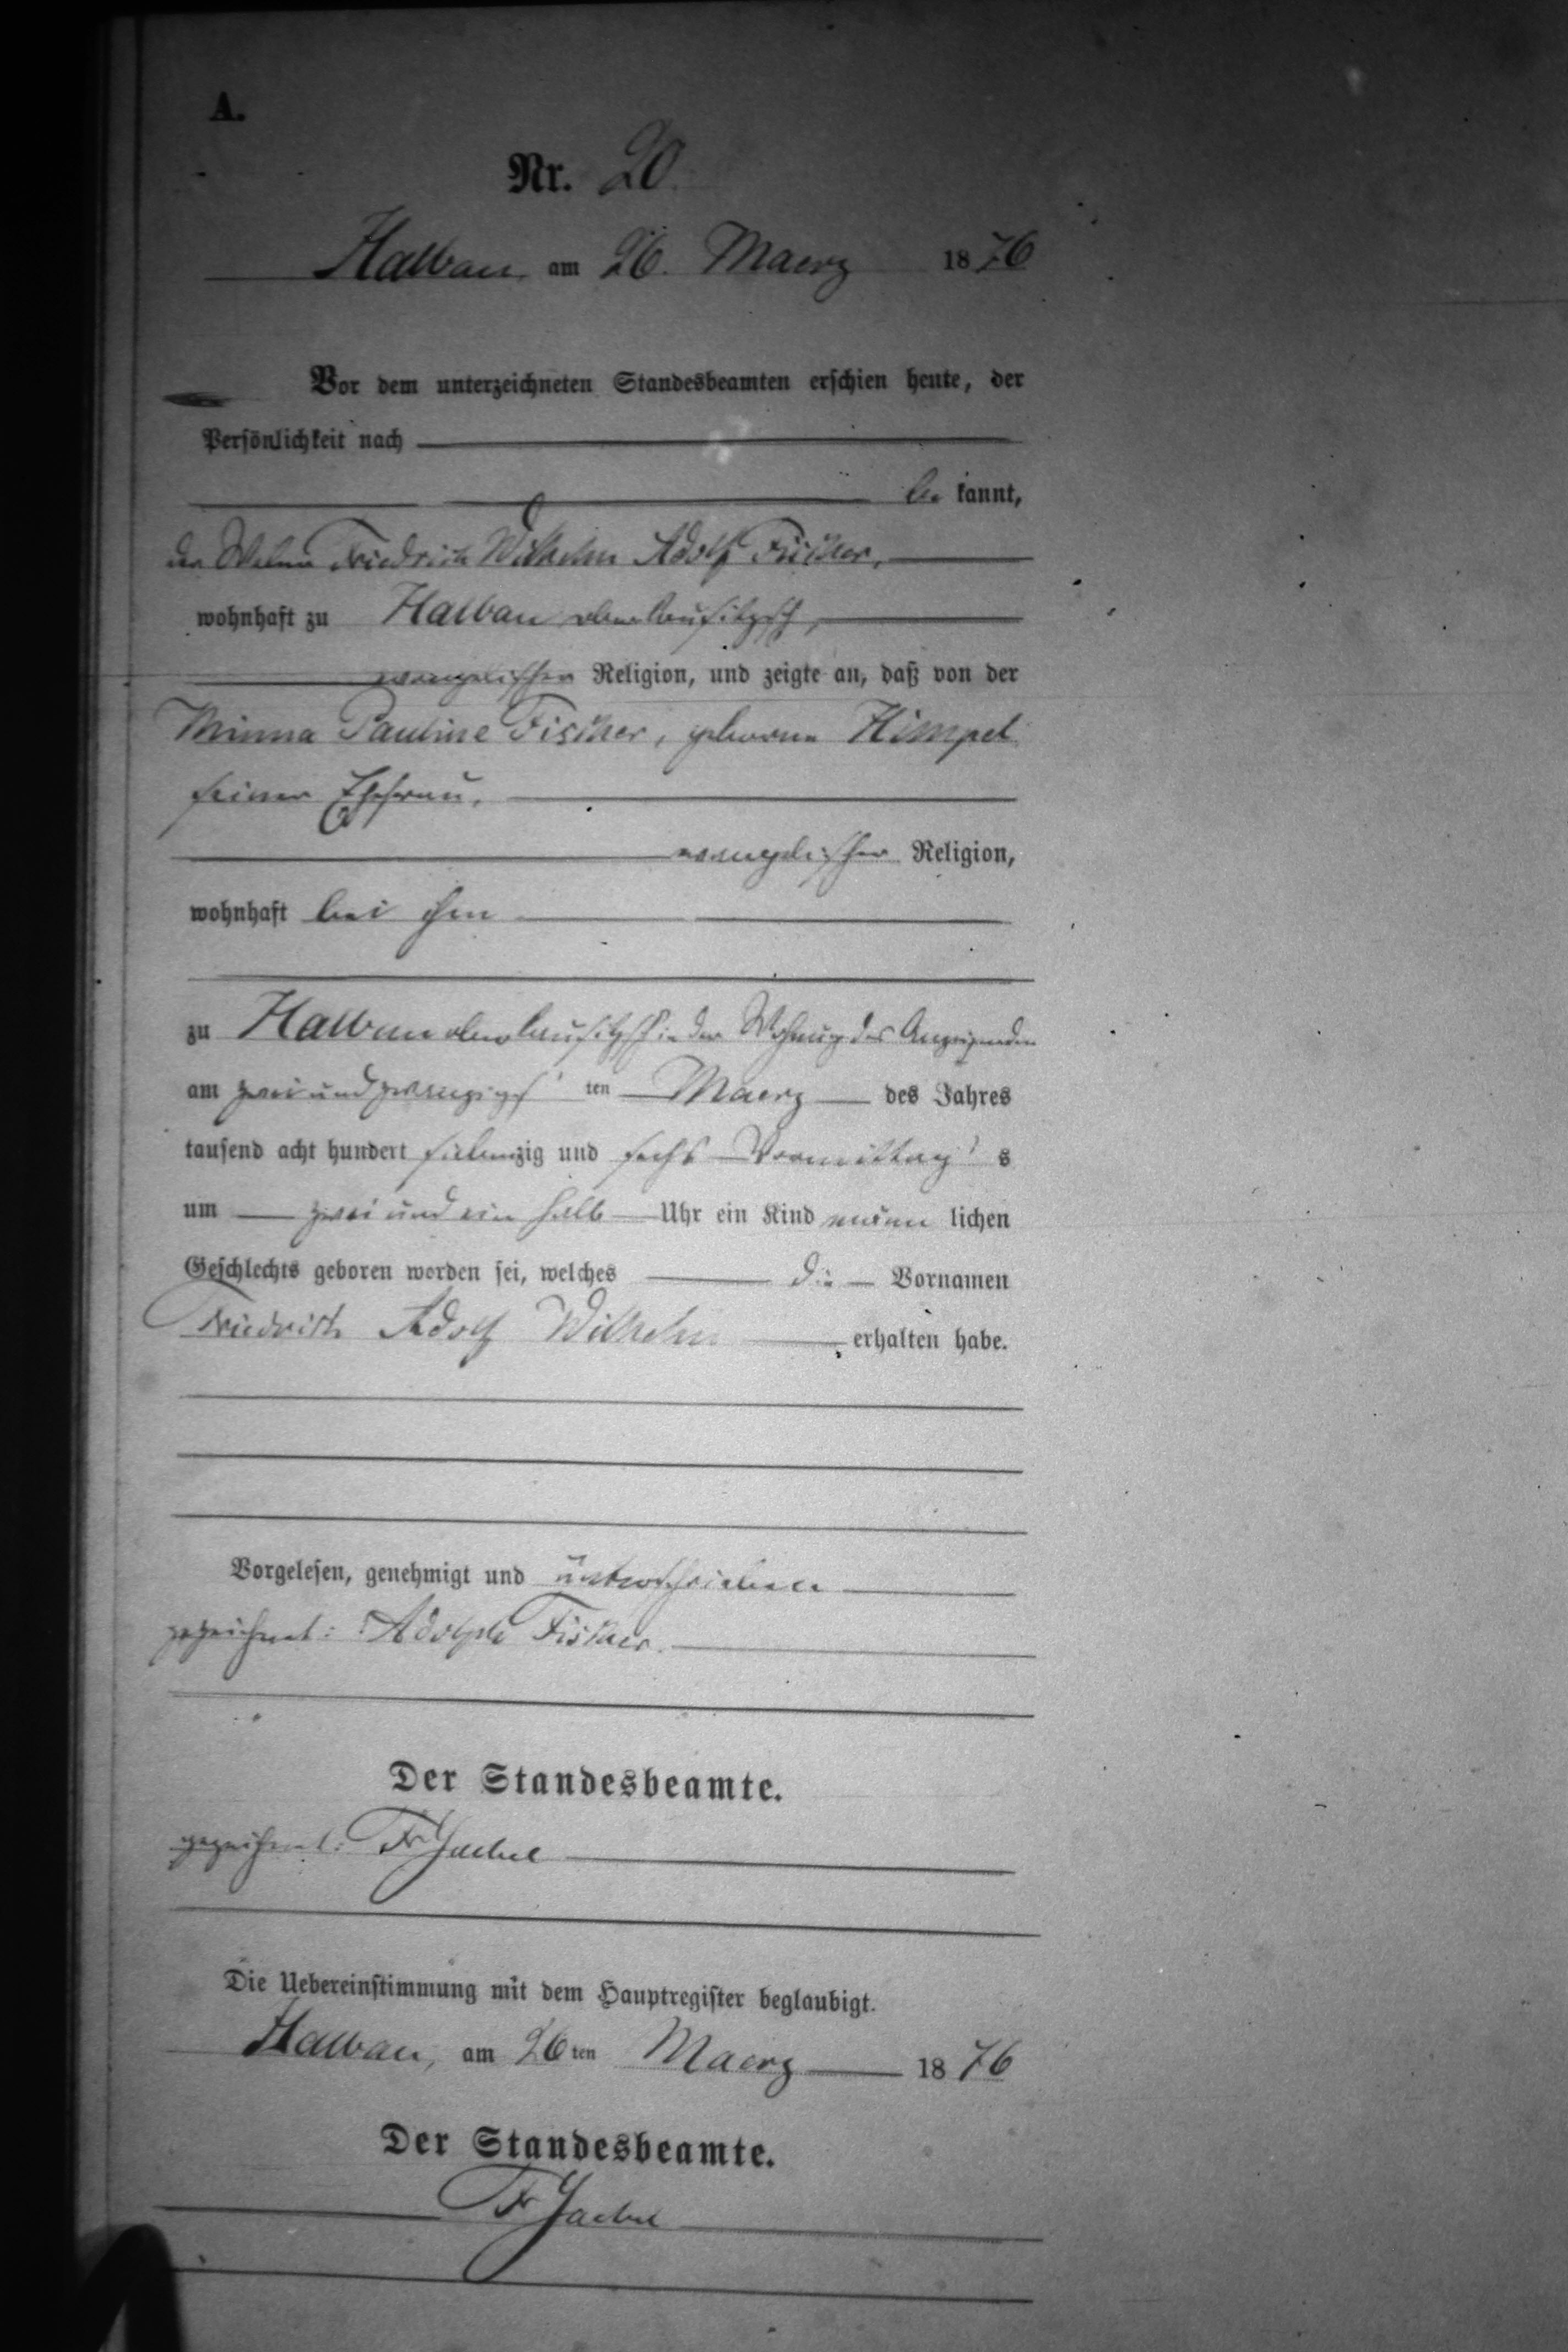 A.
Nr. 20.
Halbau, am 26. Maerz 1876
Vor dem unterzeichneten Standesbeamten erschien heute, der
Persönlichkeit nach
be kannt,
der Friedrich Wilhelm Adolf Fischer,
wohnhaft zu Halbau oberlausitzsch,
evangelischer Religion, und zeigte an, daß von der
Minna Pauline Fischer, geborne Himpel
seiner Ehefrau,
evangelischer Religion,
wohnhaft bei ihm
zu Halbau oberlausitzsch in der Wohnung des Anzeigenden
am zwei und zwanzigs ten Maerz des Jahres
tausend acht hundert siebenzig und sechs Vormittag s
um zwei und ein halb Uhr ein Kind männ lichen
Geschlechts geboren worden sei, welches die Vornamen
Friedrich Adolf Wilhelm erhalten habe.
Vorgelesen, genehmigt und unterschrieben
gezeichnet: Adolph Fischer.
Der Standesbeamte.
gezeichnet: Fr
Die Uebereinstimmung mit dem Hauptregister beglaubigt.
Halbau, am 26ten Maerz 1876
Der Standesbeamte.
Fr